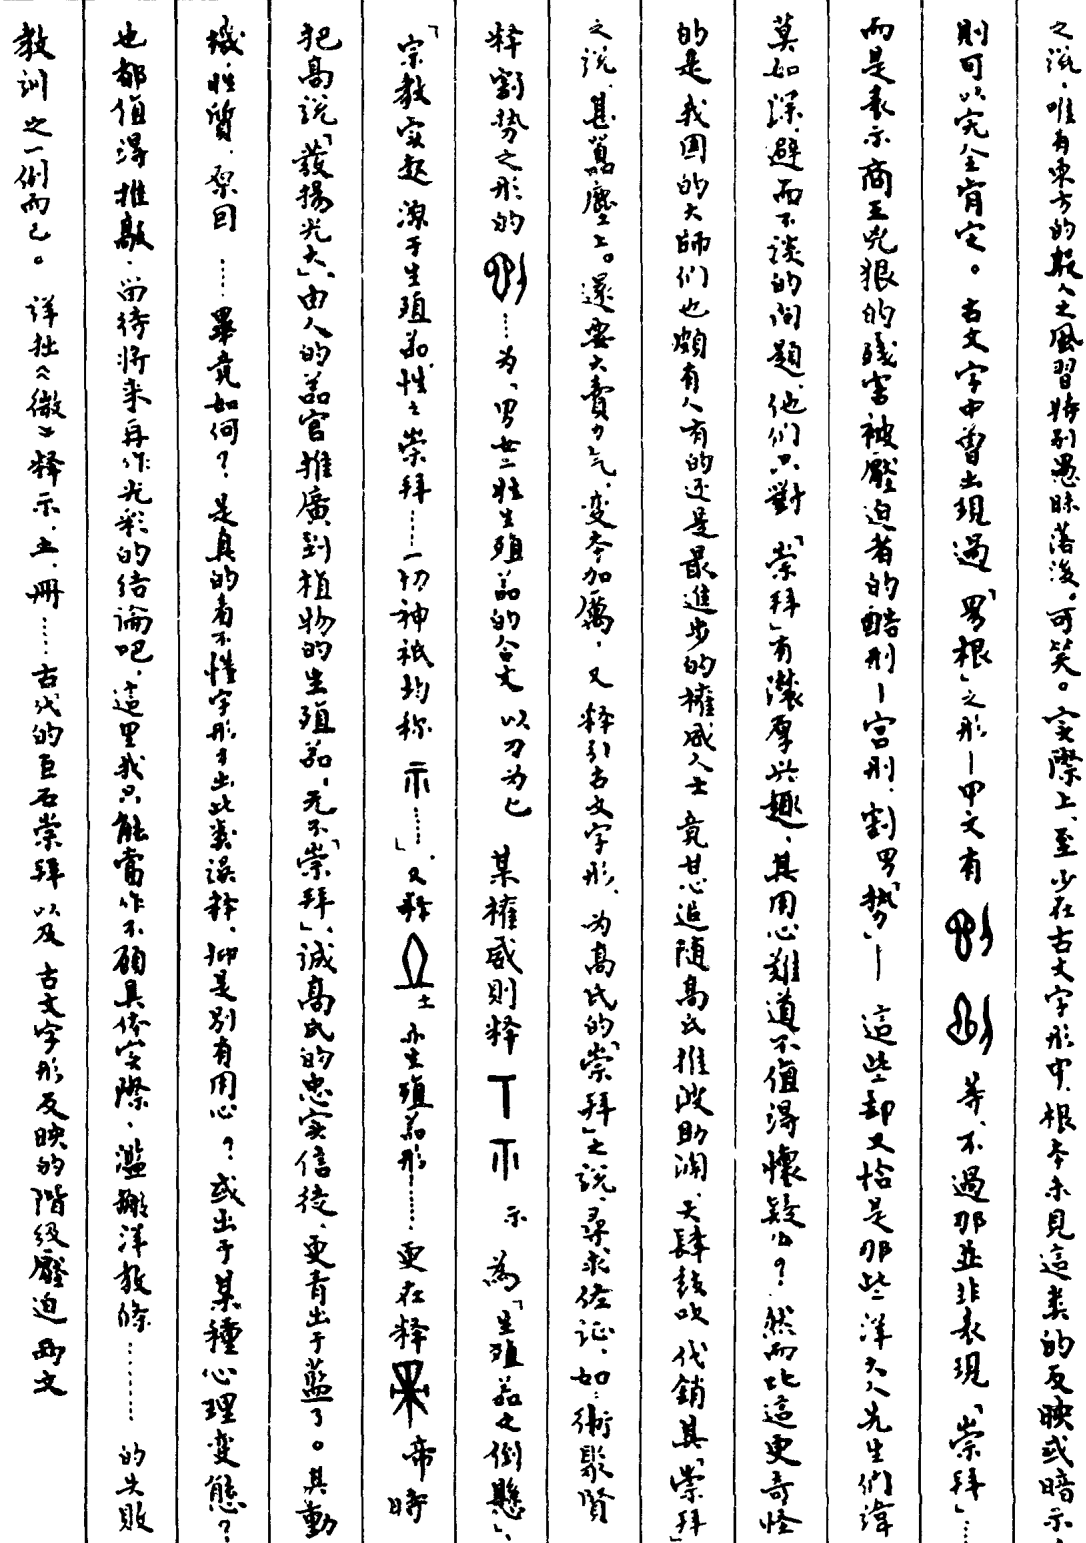 之说，唯有東方的殷人之風習特别愚昧落後。可笑。实際上、至少在古文字形中、根本未見這类的反映或暗示，
則可以完全肯定。古文字中曾出現過「男根」之形—甲文有 等、不過那並非表現「崇拜」……
而是表示商王兇狠的残害被壓迫者的酷刑—宫刑，割男「勢」— 這些却又恰是那些洋大人先生們諱
莫如深、避而不談的问題，他们只對「崇拜」有濃厚兴趣，其用心難道不值得懷疑么？然而比這更奇怪
的是我国的大師们也頗有人有的还是最進步的權威人士 竟甘心追随高氏推波助澜、大肆鼓吹 代銷其「崇拜」
之说，甚囂塵上。還要大賣力气，变本加厲，又释引古文字形，为高氏的「崇拜」之説，尋求佐证，如：衛聚賢
释割勢之形的 ……为「男女二性生殖器的合文 以刀为匕 某權威則释 丅 示 为「生殖器之倒懸」、
「宗教实起源于生殖器，性之崇拜……一切神祇均称 示……」，又释 土 亦生殖器形……更在释 帝時
把高说「發揚光大」、由人的器官推廣到植物的生殖器，无不「崇拜」、诚高氏的忠实信徒、更青出于藍了。其動
機、性質、原因……畢竟如何？是真的看不懂字形才出此类误释，抑是别有用心？或出于某種心理变態？
也都值得推敲，留待将来再作光彩的结論吧，這里我只能當作不顧具体实際、濫搬洋教條………的失敗
教训之一例而已。詳拙《微》释示、土、冊……古代的巨石崇拜以及 古文字形反映的階级壓迫 两文